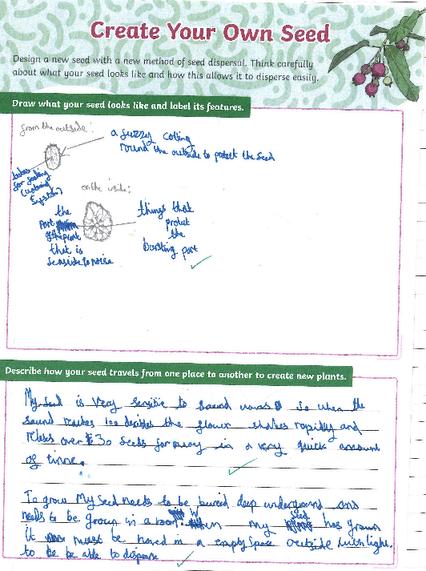 Create Your Own Seed
Design a new seed with a new method of seed dispersal. Think carefully
about what your seed looks like and how this allows it to disperse easily.
Draw what your seed looks like and label its features.
from the outside:
a fuzzy coting
round the outside to protect the seed
for
on the inside:
the
part
of the plant
that is
things that
protect
the
bursting part
Describe how your seed travels from one place to another to create new plants.
My seed is very sensitive to sound waves so when the
sound reaches 100 the flower shakes rapidly and
over 30 seeds in a very quick amount
of time.
To grow My seed needs to be buried deep underground and
needs to be grown in a my seed has grown
it must be in a empty space outside with light.
to be be able to disperse